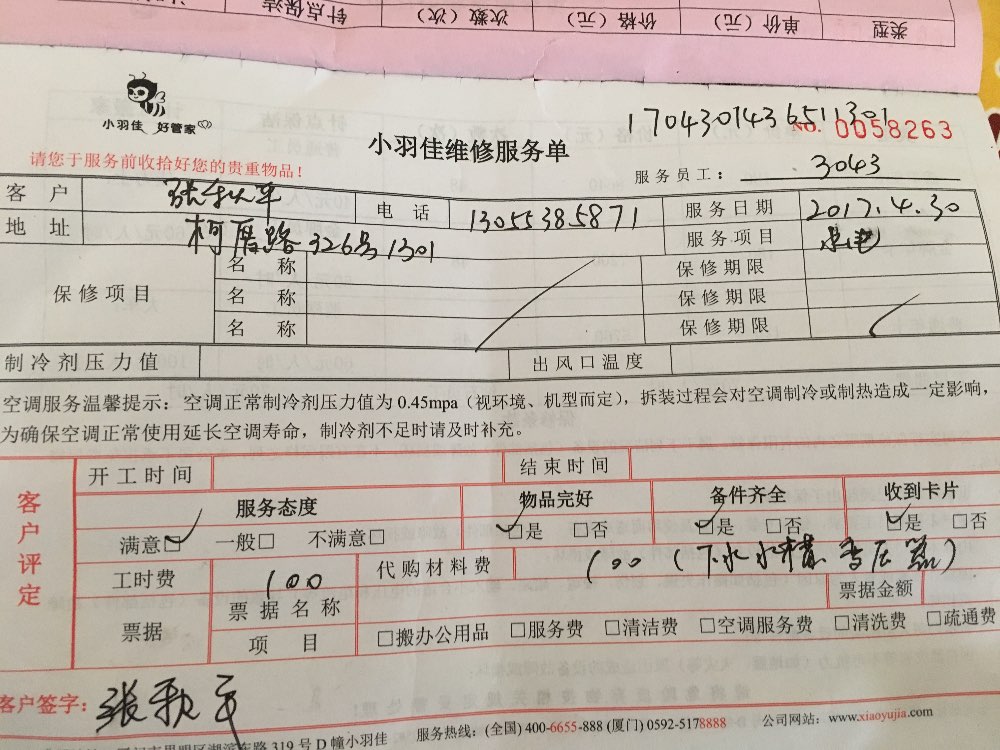 类型 单价（元） 价格（元） 次数（次） 针点保洁
小羽佳 好管家
1704301436511301
No. 0058263
小羽佳维修服务单
请您于服务前收拾好您的贵重物品！
服务员工： 3043
客 户 电 话 13055385871 服务日期 2017.4.30
地 址 柯厝路326号1301 服务项目 水电
保修项目 名 称 保修期限
名 称 保修期限
名 称 保修期限
制冷剂压力值 出风口温度
空调服务温馨提示：空调正常制冷剂压力值为 0.45mpa（视环境、机型而定），拆装过程会对空调制冷或制热造成一定影响，
为确保空调正常使用延长空调寿命，制冷剂不足时请及时补充。
客户评定
开工时间 结束时间
服务态度 物品完好 备件齐全 收到卡片
满意☑ 一般□ 不满意□ ☑是 □否 ☑是 □否 ☑是 □否
工时费 100 代购材料费 100（下水
票据 票据名称 票据金额
项 目 □搬办公用品 □服务费 □清洁费 □空调服务费 □清洗费 □疏通费
客户签字：
服务热线：(全国) 400-6655-888 (厦门) 0592-5178888 公司网站：www.xiaoyujia.com
路 319 号 D 幢小羽佳